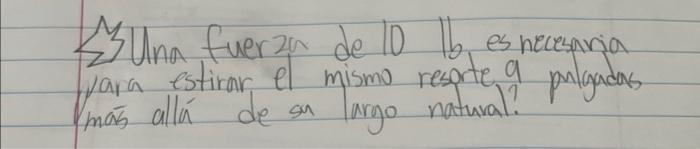 Una fuerza de 10 lb es necesaria
para estirar el mismo resorte 9 pulgadas
más allá de su largo natural?